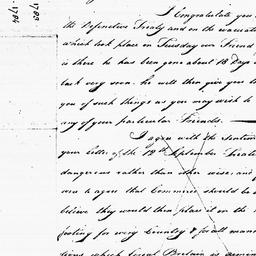 1784 1783
I Congratulate you
the Definitive Treaty and on the evacuat
which took place on Tuesday our Friend
is there he has been gone about 18 Days
back very soon. he will then give you
you of such things as you may wish to
any of your particular Friends.
I agree with the sentim
your Letter of the 12th September Treatie
dangerous rather than other wise; and
were to agree that Commerce should be
believe they would then place it on the
footing for every Country & for all mann
tions which Great Britain is